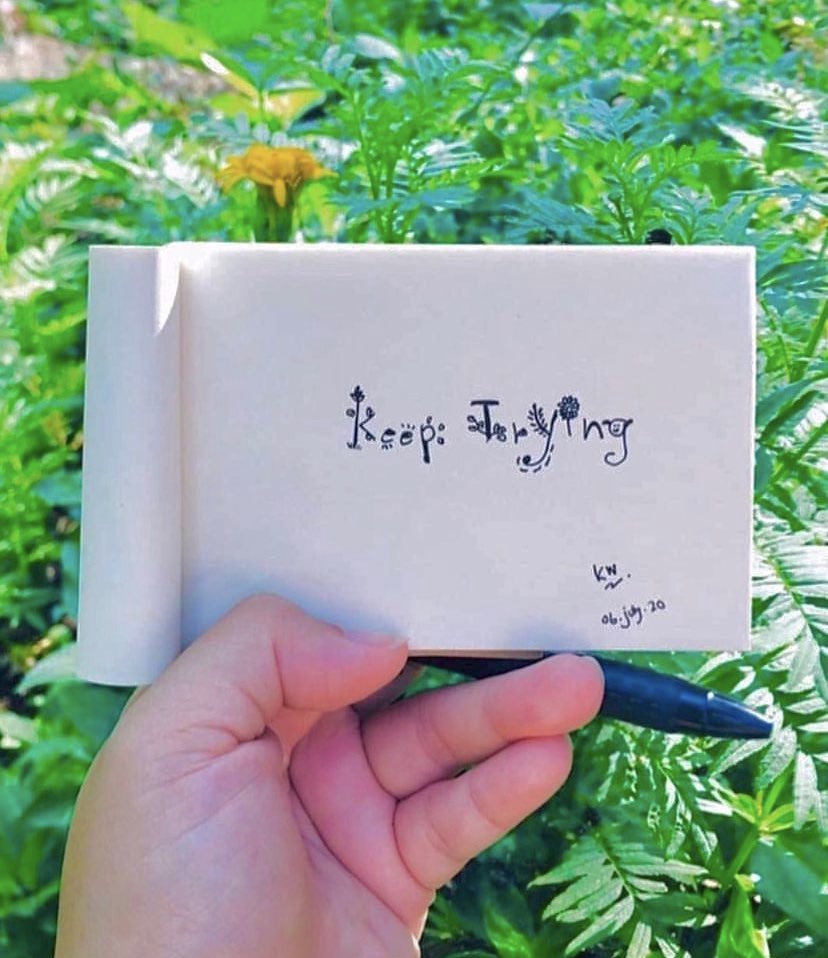 Keep Trying
KW.
06.july.20